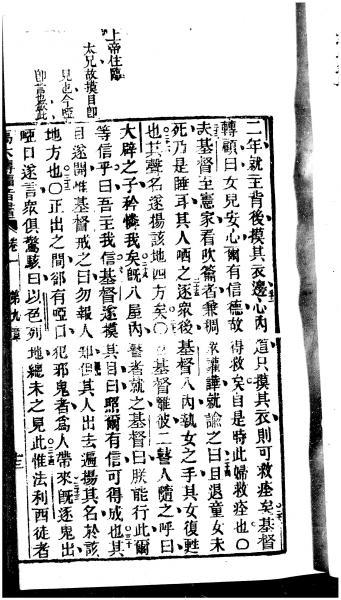 上帝住臨
太兄故摸目卽
見也今啞
卽言也欽此
二年就主背後摸其衣邊心內道只摸其衣則可救痊矣基督
轉顧曰女兒安心爾有信德故得救矣自是時此婦救痊也〇
夫基督至憲家看吹籥者兼稠衆讙譁就諭之曰且退童女未
死乃是睡耳其人哂之逐衆後基督入內執女之手其女復甦
也其聲名遂揚該地四方矣〇基督離彼二瞽人隨之呼曰
大辟之子矜憐我矣旣入屋內瞽者就之基督曰朕能行此爾
等信乎曰吾主我信基督遂摸其目曰照爾有信可得成也其
目遂開惟基督戒之曰勿報人知但其人出去遍揚其名於該
地方也〇正出之間卻有啞口犯邪鬼者爲人帶來旣逐鬼出
啞口遂言衆俱驚駭曰以色列地總未之見此惟法利西徒者
馬太傳福音書 卷一 第九章 十三